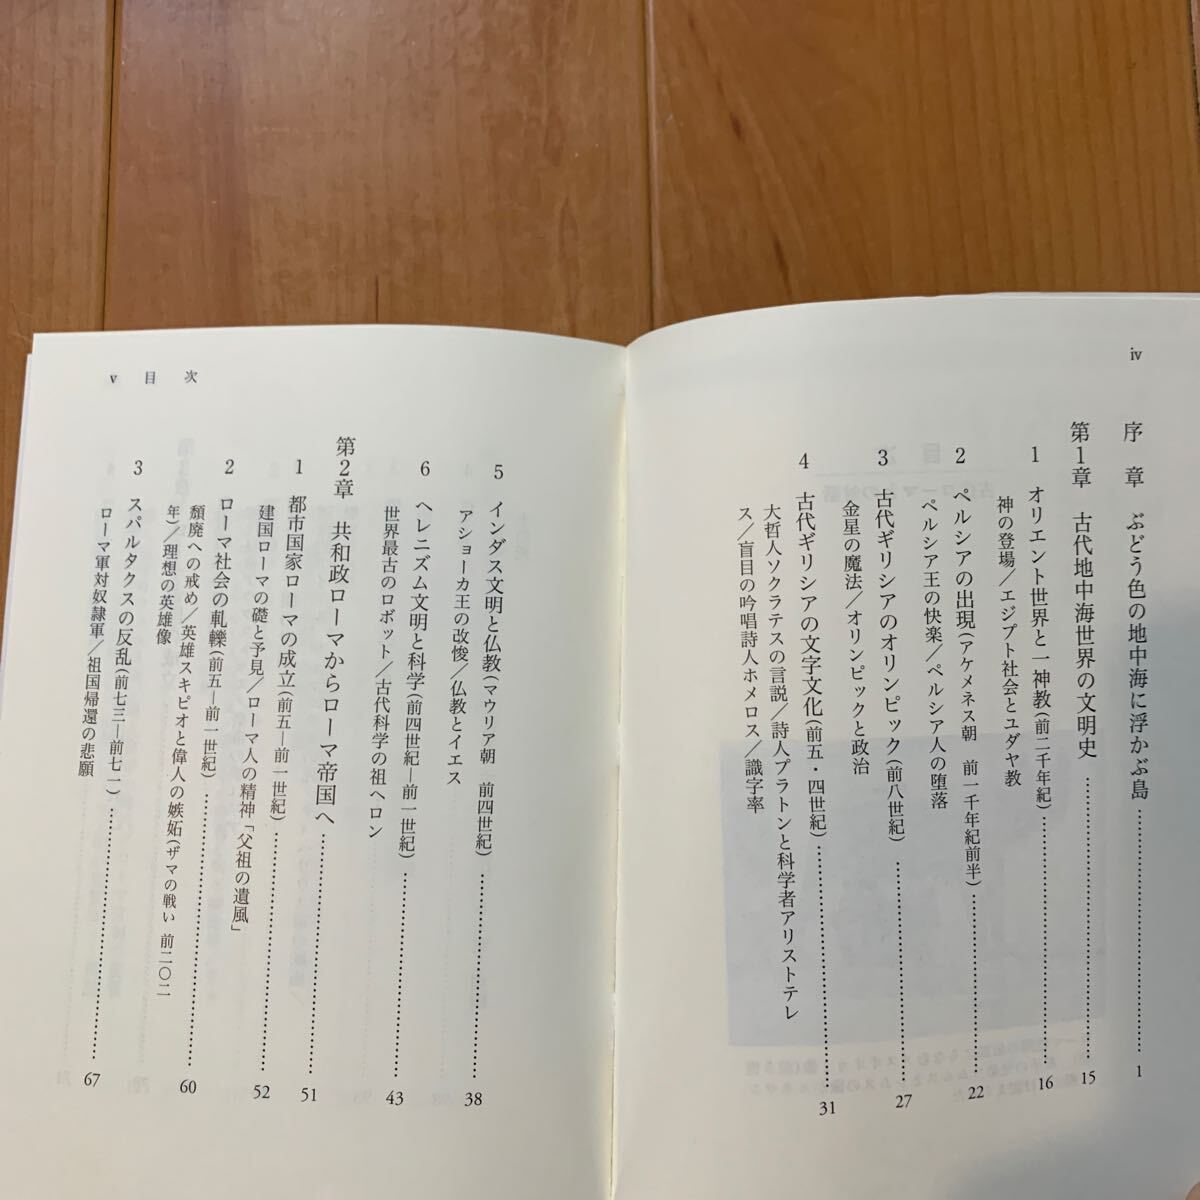 iv
序章 ぶどう色の地中海に浮かぶ島 1
第1章 古代地中海世界の文明史 15
1 オリエント世界と一神教(前二千年紀) 16
神の登場/エジプト社会とユダヤ教
2 ペルシアの出現(アケメネス朝 前一千年紀前半) 22
ペルシア王の快楽/ペルシア人の堕落
3 古代ギリシアのオリンピック(前八世紀) 27
金星の魔法/オリンピックと政治
4 古代ギリシアの文字文化(前五・四世紀) 31
大哲人ソクラテスの言説/詩人プラトンと科学者アリストテレ
ス/盲目の吟唱詩人ホメロス/識字率
v 目次
5 インダス文明と仏教(マウリア朝 前四世紀) 38
アショーカ王の改悛/仏教とイエス
6 ヘレニズム文明と科学(前四世紀―前一世紀) 43
世界最古のロボット/古代科学の祖ヘロン
第2章 共和政ローマからローマ帝国へ 51
1 都市国家ローマの成立(前五―前一世紀) 52
建国ローマの礎と予見/ローマ人の精神「父祖の遺風」
2 ローマ社会の軋轢(前五―前一世紀) 60
頽廃への戒め/英雄スキピオと偉人の嫉妬(ザマの戦い 前二〇二
年)/理想の英雄像
3 スパルタクスの反乱(前七三―前七一) 67
ローマ軍対奴隷軍/祖国帰還の悲願